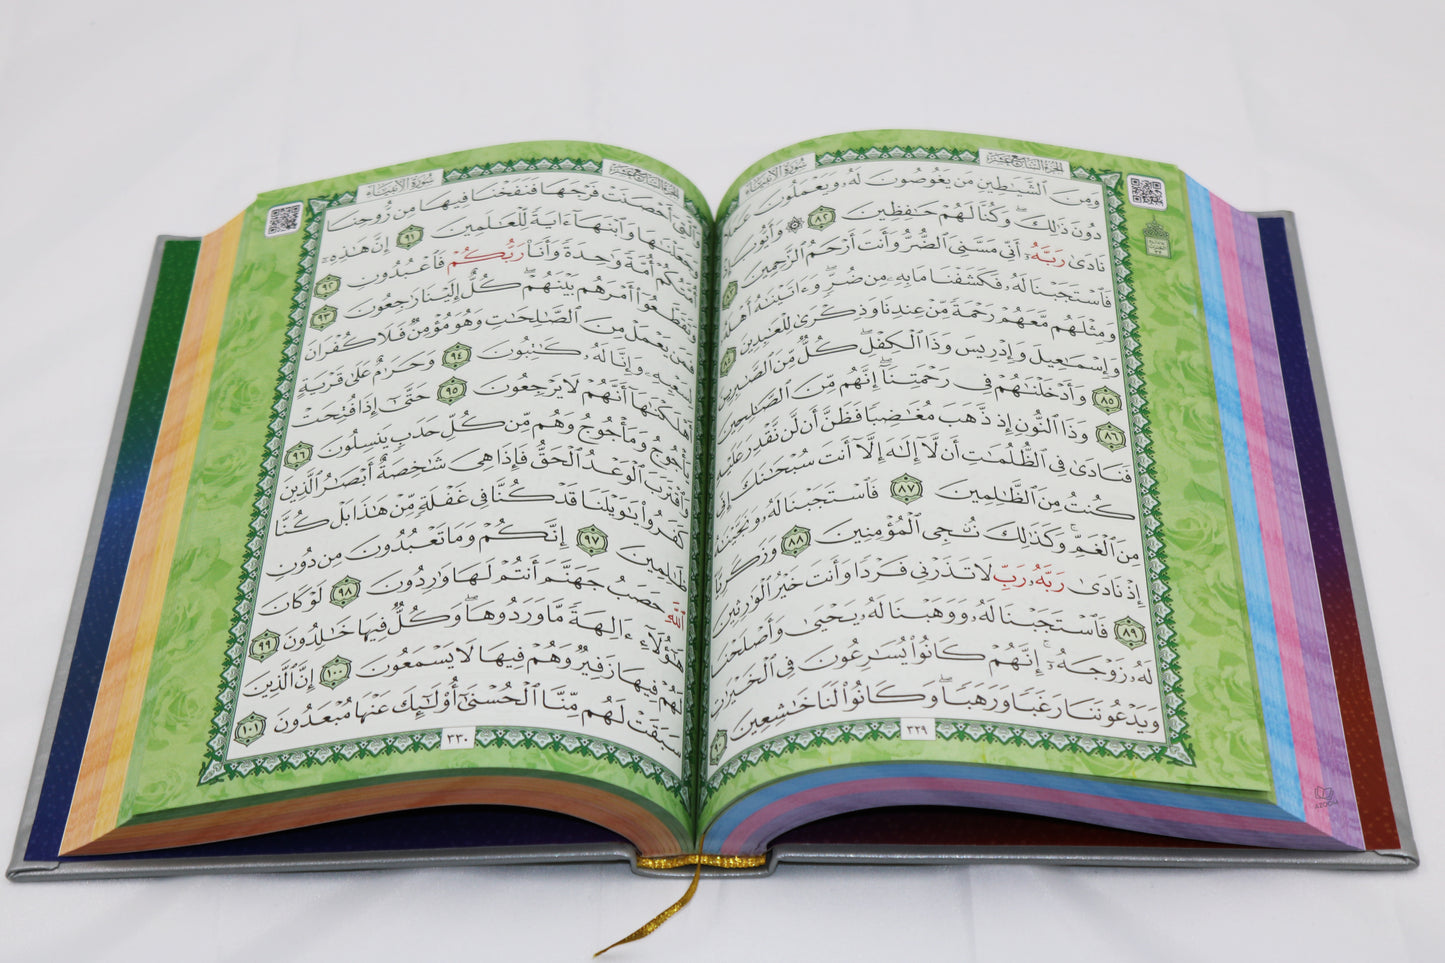 سُورَةُ الأَنبِيَاء
الجُزءُ السَّابِعَ عَشَرَ
وَمِنَ ٱلشَّيَٰطِينِ مَن يَغُوصُونَ لَهُۥ وَيَعۡمَلُونَ عَمَلٗا
دُونَ ذَٰلِكَۖ وَكُنَّا لَهُمۡ حَٰفِظِينَ ٨٢ ۞ وَأَيُّوبَ
نَادَىٰ رَبَّهُۥٓ أَنِّي مَسَّنِيَ ٱلضُّرُّ وَأَنتَ أَرۡحَمُ ٱلرَّٰحِمِينَ ٨٣
فَٱسۡتَجَبۡنَا لَهُۥ فَكَشَفۡنَا مَا بِهِۦ مِن ضُرّٖۖ وَءَاتَيۡنَٰهُ أَهۡلَهُۥ
وَمِثۡلَهُم مَّعَهُمۡ رَحۡمَةٗ مِّنۡ عِندِنَا وَذِكۡرَىٰ لِلۡعَٰبِدِينَ ٨٤
وَإِسۡمَٰعِيلَ وَإِدۡرِيسَ وَذَا ٱلۡكِفۡلِۖ كُلّٞ مِّنَ ٱلصَّٰبِرِينَ
٨٥ وَأَدۡخَلۡنَٰهُمۡ فِي رَحۡمَتِنَآۖ إِنَّهُم مِّنَ ٱلصَّٰلِحِينَ
٨٦ وَذَا ٱلنُّونِ إِذ ذَّهَبَ مُغَٰضِبٗا فَظَنَّ أَن لَّن نَّقۡدِرَ عَلَيۡهِ
فَنَادَىٰ فِي ٱلظُّلُمَٰتِ أَن لَّآ إِلَٰهَ إِلَّآ أَنتَ سُبۡحَٰنَكَ إِنِّي
كُنتُ مِنَ ٱلظَّٰلِمِينَ ٨٧ فَٱسۡتَجَبۡنَا لَهُۥ وَنَجَّيۡنَٰهُ
مِنَ ٱلۡغَمِّۚ وَكَذَٰلِكَ نُـۨجِي ٱلۡمُؤۡمِنِينَ ٨٨ وَزَكَرِيَّآ
إِذۡ نَادَىٰ رَبَّهُۥ رَبِّ لَا تَذَرۡنِي فَرۡدٗا وَأَنتَ خَيۡرُ ٱلۡوَٰرِثِينَ
٨٩ فَٱسۡتَجَبۡنَا لَهُۥ وَوَهَبۡنَا لَهُۥ يَحۡيَىٰ وَأَصۡلَحۡنَا
لَهُۥ زَوۡجَهُۥٓۚ إِنَّهُمۡ كَانُواْ يُسَٰرِعُونَ فِي ٱلۡخَيۡرَٰتِ
وَيَدۡعُونَنَا رَغَبٗا وَرَهَبٗاۖ وَكَانُواْ لَنَا خَٰشِعِينَ ٩٠
٣٢٩
سُورَةُ الأَنبِيَاء
الجُزءُ السَّابِعَ عَشَرَ
وَٱلَّتِيٓ أَحۡصَنَتۡ فَرۡجَهَا فَنَفَخۡنَا فِيهَا مِن رُّوحِنَا
وَجَعَلۡنَٰهَا وَٱبۡنَهَآ ءَايَةٗ لِّلۡعَٰلَمِينَ ٩١ إِنَّ هَٰذِهِۦٓ
أُمَّتُكُمۡ أُمَّةٗ وَٰحِدَةٗ وَأَنَا۠ رَبُّكُمۡ فَٱعۡبُدُونِ ٩٢
وَتَقَطَّعُوٓاْ أَمۡرَهُم بَيۡنَهُمۡۖ كُلٌّ إِلَيۡنَا رَٰجِعُونَ ٩٣
فَمَن يَعۡمَلۡ مِنَ ٱلصَّٰلِحَٰتِ وَهُوَ مُؤۡمِنٞ فَلَا كُفۡرَانَ
لِسَعۡيِهِۦ وَإِنَّا لَهُۥ كَٰتِبُونَ ٩٤ وَحَرَٰمٌ عَلَىٰ قَرۡيَةٍ
أَهۡلَكۡنَٰهَآ أَنَّهُمۡ لَا يَرۡجِعُونَ ٩٥ حَتَّىٰٓ إِذَا فُتِحَتۡ
يَأۡجُوجُ وَمَأۡجُوجُ وَهُم مِّن كُلِّ حَدَبٖ يَنسِلُونَ ٩٦
وَٱقۡتَرَبَ ٱلۡوَعۡدُ ٱلۡحَقُّ فَإِذَا هِيَ شَٰخِصَةٌ أَبۡصَٰرُ ٱلَّذِينَ
كَفَرُواْ يَٰوَيۡلَنَا قَدۡ كُنَّا فِي غَفۡلَةٖ مِّنۡ هَٰذَا بَلۡ كُنَّا
ظَٰلِمِينَ ٩٧ إِنَّكُمۡ وَمَا تَعۡبُدُونَ مِن دُونِ
ٱللَّهِ حَصَبُ جَهَنَّمَ أَنتُمۡ لَهَا وَٰرِدُونَ ٩٨ لَوۡ كَانَ
هَٰٓؤُلَآءِ ءَالِهَةٗ مَّا وَرَدُوهَاۖ وَكُلّٞ فِيهَا خَٰلِدُونَ ٩٩
لَهُمۡ فِيهَا زَفِيرٞ وَهُمۡ فِيهَا لَا يَسۡمَعُونَ ١٠٠ إِنَّ ٱلَّذِينَ
سَبَقَتۡ لَهُم مِّنَّا ٱلۡحُسۡنَىٰٓ أُوْلَٰٓئِكَ عَنۡهَا مُبۡعَدُونَ ١٠١
٣٣٠